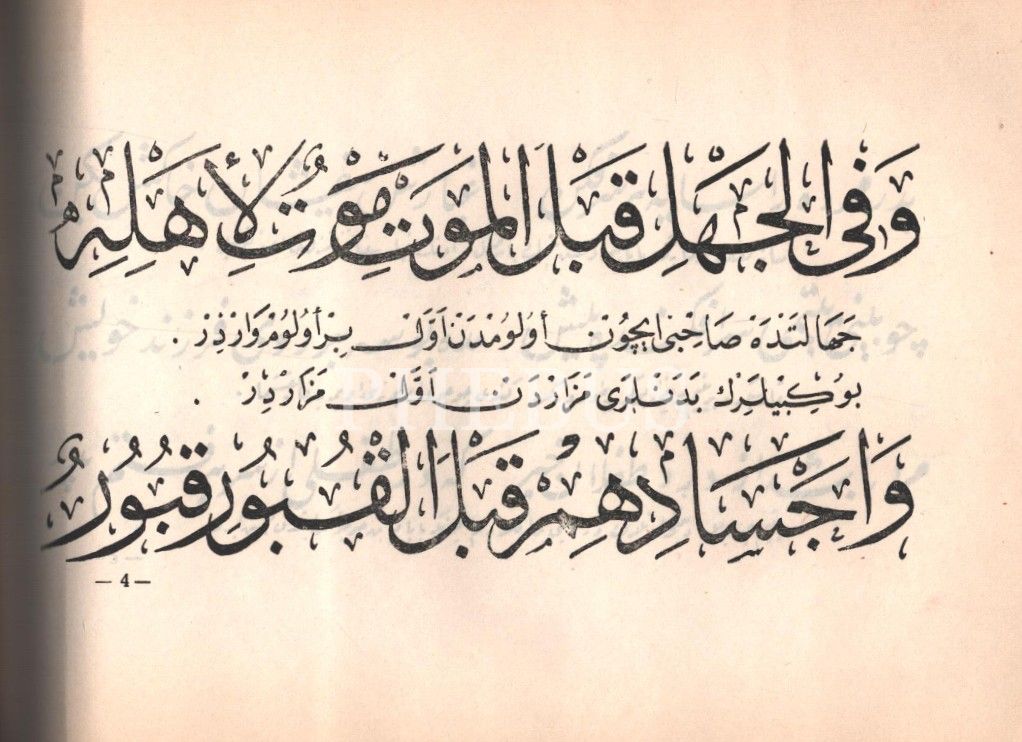 وَفِي الْجَهْلِ قَبْلَ الْمَوْتِ مَوْتٌ لِأَهْلِهِ
جَهَالَتْدَه صَاحِبْى اِيچُونْ أُولُومْدَنْ اَوَّلْ بِرْ أُولُومْ وَارْدِرْ .
بُو كِبِيلَرِكْ بَدَنْلَرِى مَزَارْدَنْ اَوَّلْ مَزَارْدِرْ .
وَأَجْسَادُهُمْ قَبْلَ الْقُبُورِ قُبُورٌ
— 4 —
PHEBUS